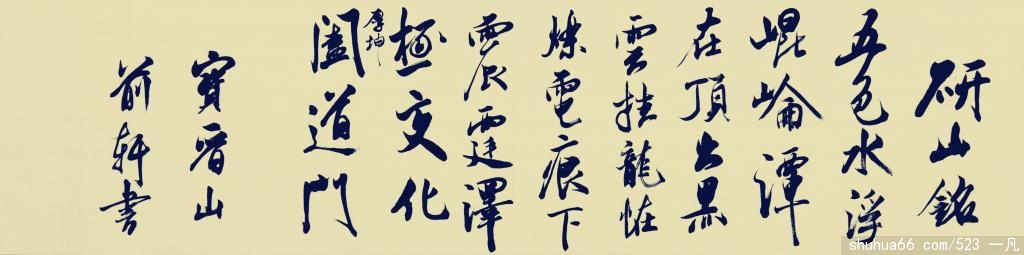 研山銘
五色水浮
崐崘潭
在頂出黑
雲挂龍恠
爍電痕下
震霆澤
極變化
厚坤
闔道門
寶晉山
前軒書
shuhua66.com/523 一凡